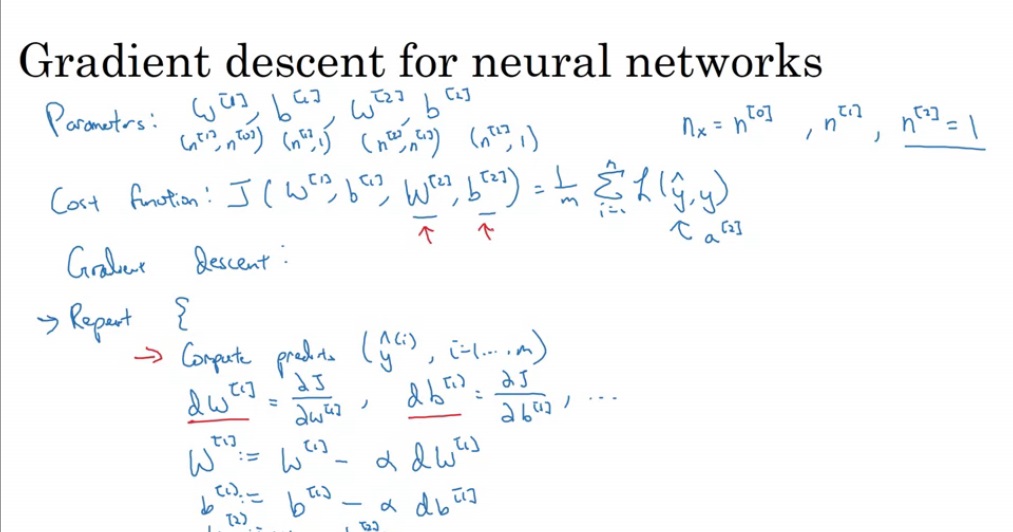 Gradient descent for neural networks
Parameters: W^[1], b^[1], W^[2], b^[2]
(n^[1], n^[0]) (n^[1], 1) (n^[2], n^[1]) (n^[2], 1)
n_x = n^[0], n^[1], n^[2] = 1
Cost function: J(W^[1], b^[1], W^[2], b^[2]) = 1/m ∑_{i=1}^n L(ŷ, y)
↑ ↑ ↖ a^[2]
Gradient descent:
→ Repeat {
→ Compute predicts (ŷ^(i), i=1...,m)
dw^[1] = ∂J/∂w^[1], db^[1] = ∂J/∂b^[1], ...
W^[1] := W^[1] - α dW^[1]
b^[1] := b^[1] - α db^[1]